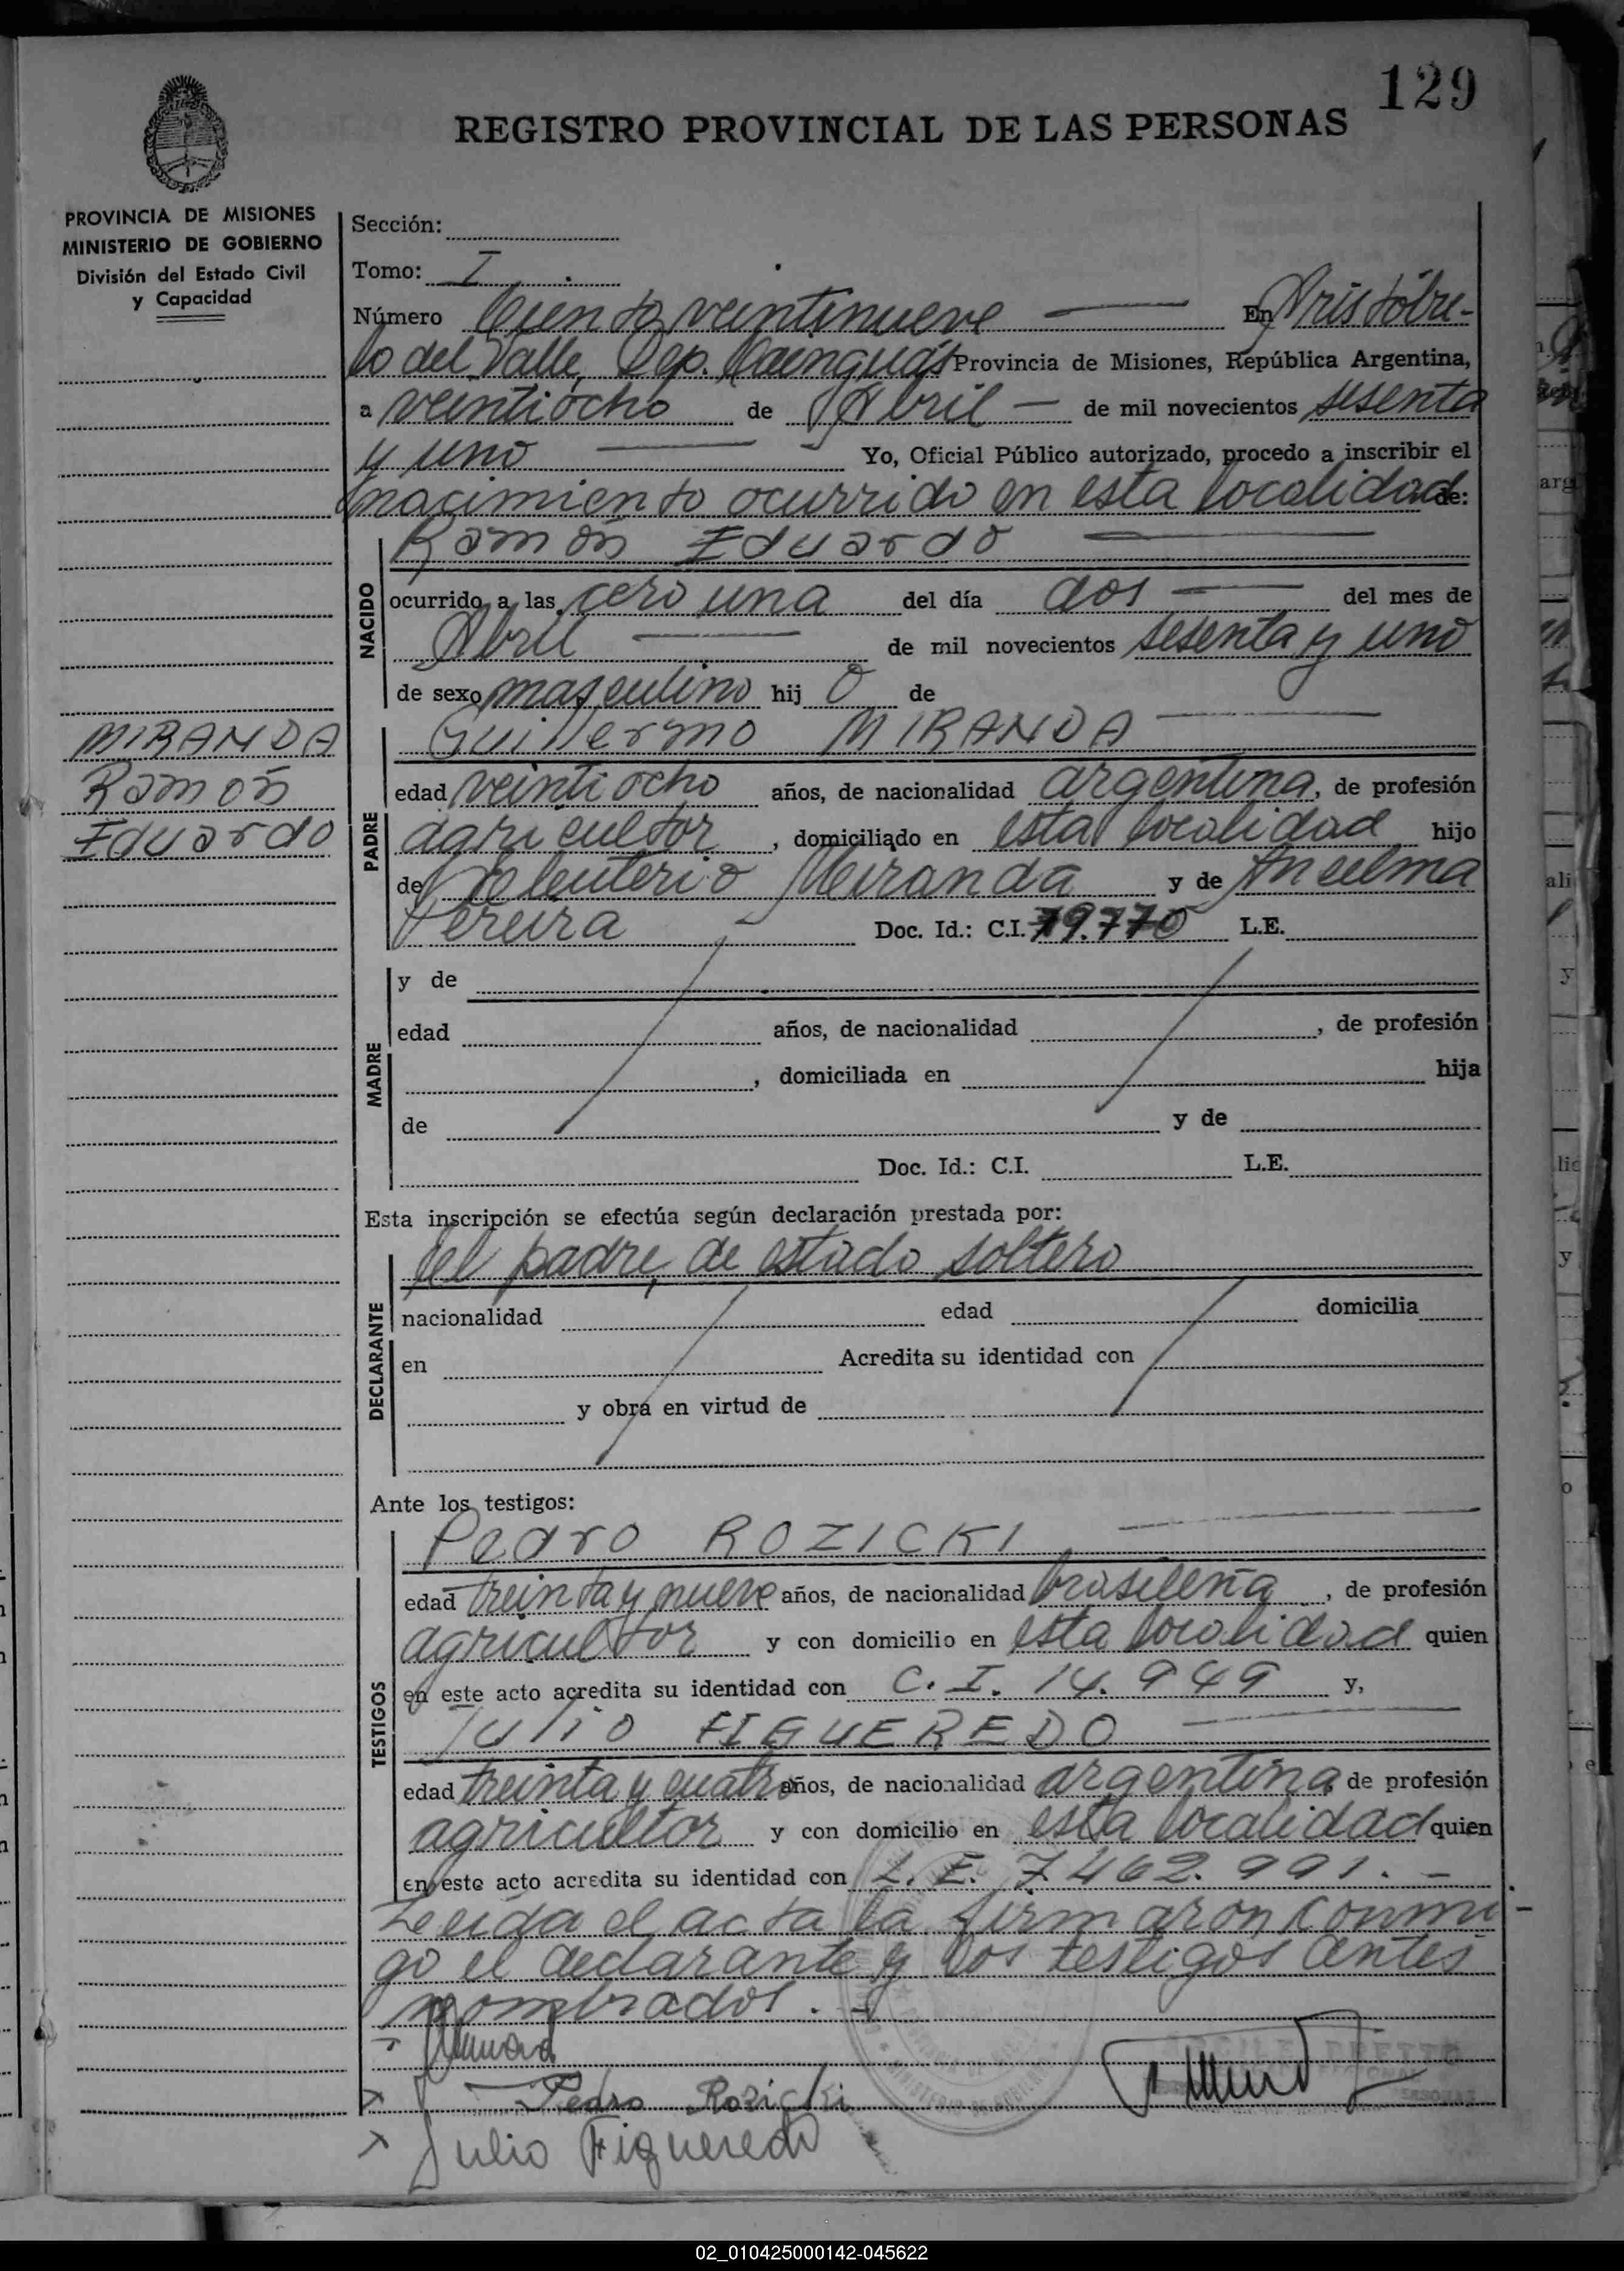 129
REGISTRO PROVINCIAL DE LAS PERSONAS
PROVINCIA DE MISIONES
MINISTERIO DE GOBIERNO
División del Estado Civil
y Capacidad
Sección:
Tomo: I
Número Ciento veintinueve En Aristóbu-
lo del Valle, Dep. Cainguás Provincia de Misiones, República Argentina,
a veintiocho de Abril de mil novecientos sesenta
y uno Yo, Oficial Público autorizado, procedo a inscribir el
nacimiento ocurrido en esta localidad de:
Ramón Eduardo
NACIDO
ocurrido a las cero una del día dos del mes de
Abril de mil novecientos sesenta y uno
de sexo masculino hij o de
MIRANDA
Ramón
Eduardo
Guillermo MIRANDA
PADRE
edad veintiocho años, de nacionalidad argentina, de profesión
agricultor, domiciliado en esta localidad hijo
de Eleuterio Miranda y de Anselma
Pereira Doc. Id.: C.I. 79.770 L.E.
MADRE
y de
edad años, de nacionalidad , de profesión
, domiciliada en hija
de y de
Doc. Id.: C.I. L.E.
Esta inscripción se efectúa según declaración prestada por:
DECLARANTE
el padre, de estado soltero
nacionalidad edad domicilia
en Acredita su identidad con
y obra en virtud de
Ante los testigos:
TESTIGOS
Pedro ROZICKI
edad treinta y nueve años, de nacionalidad brasileña, de profesión
agricultor y con domicilio en esta localidad quien
en este acto acredita su identidad con C.I. 14.949 y,
Julio FIGUEREDO
edad treinta y cuatro años, de nacionalidad argentina de profesión
agricultor y con domicilio en esta localidad quien
en este acto acredita su identidad con L.E. 7.462.991.-
Leida el acta la firmaron conmi-
go el declarante y los testigos antes
nombrados.-
Pedro Rozicki
Julio Figueredo
02_010425000142-045622